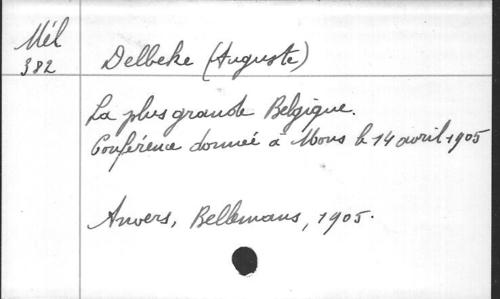 Mél
382
Delbeke (Auguste)
La plus grande Belgique.
Conférence donnée à Mons le 14 avril 1905
Anvers, Bellemans, 1905.